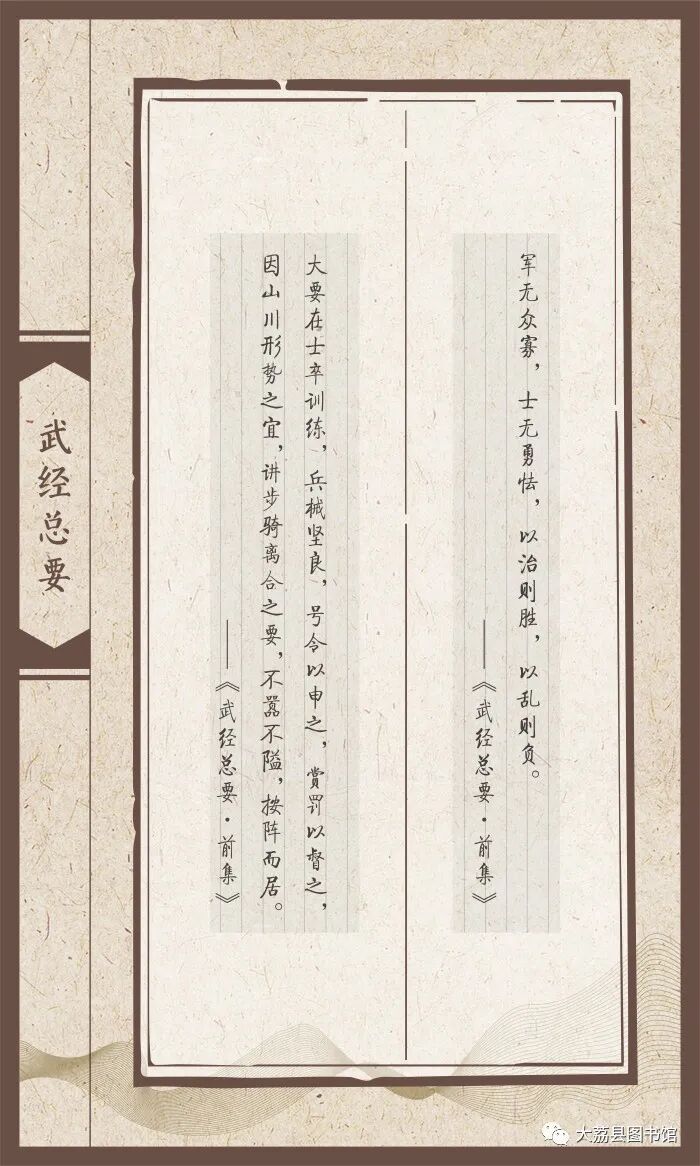 军无众寡，士无勇怯，以治则胜，以乱则负。
——《武经总要·前集》
大要在士卒训练，兵械坚良，号令以申之，赏罚以督之，
因山川形势之宜，讲步骑离合之要，不嚣不隘，按阵而居。
——《武经总要·前集》
武经总要
大荔县图书馆